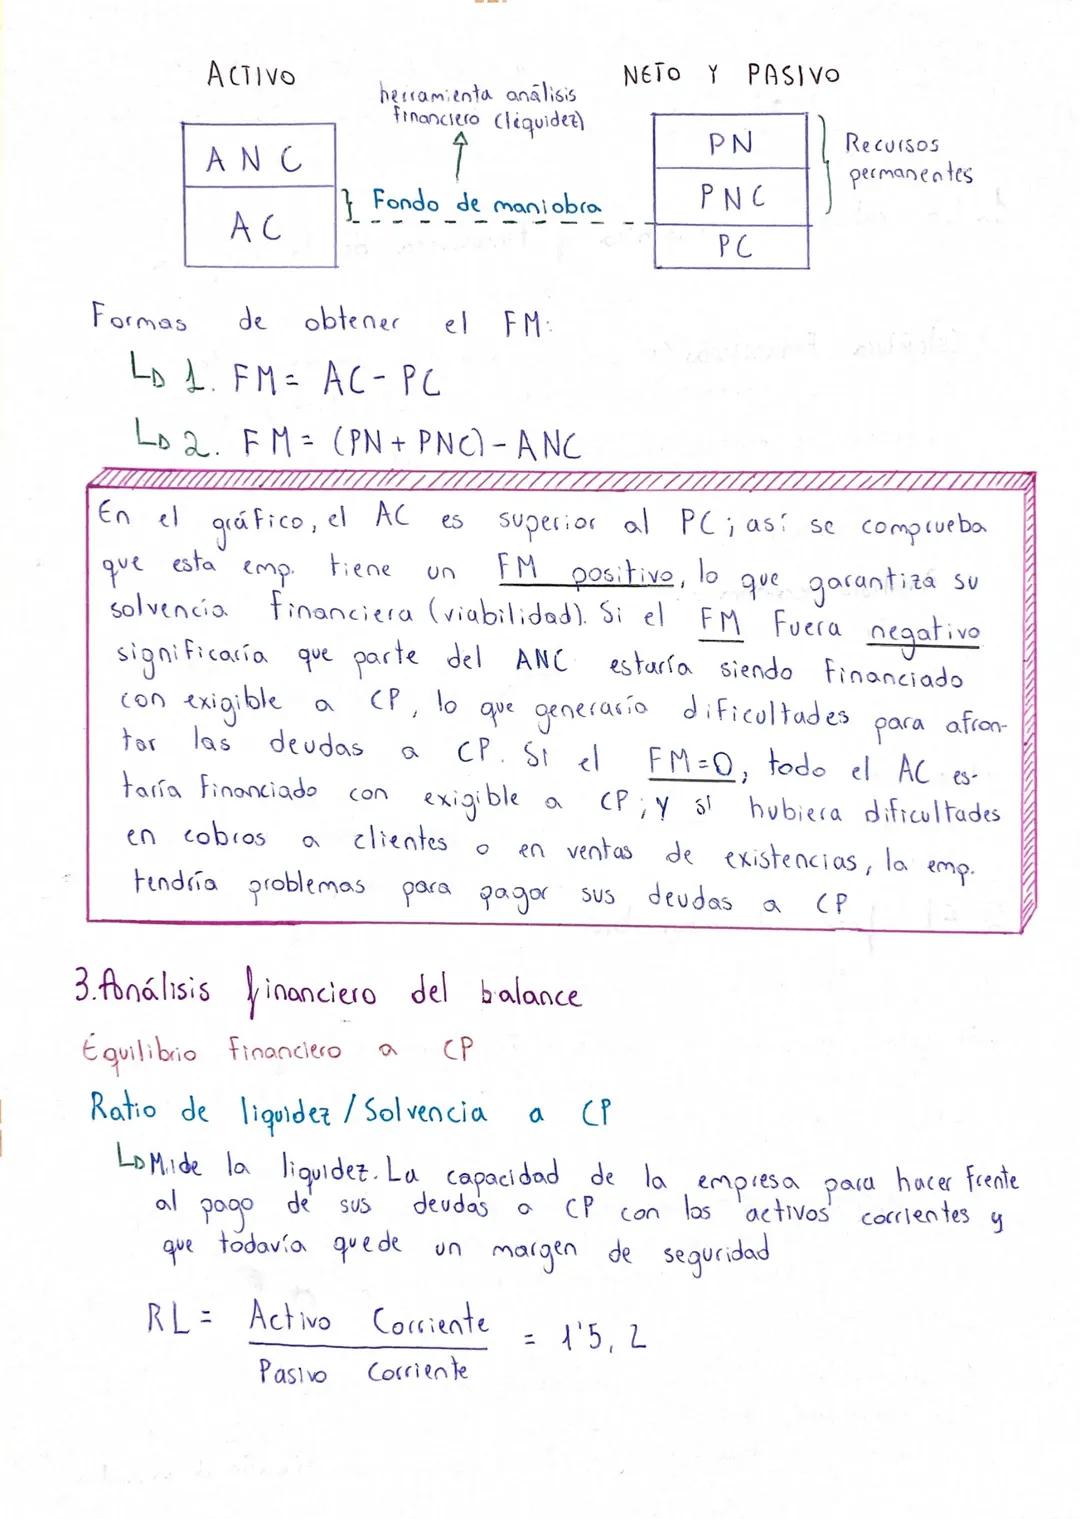 ACTIVO
NETO Y PASIVO
herramienta análisis
financiero (liquidez)
ANC
AC
Fondo de maniobra
PN
PNC
PC
Recursos
permanentes
Formas de obtener el FM:
1. FM = AC - PC
2. FM = (PN + PNC) - ANC
En el gráfico, el AC es superior al PC; así se comprueba
que esta emp. tiene un FM positivo, lo que garantiza su
solvencia financiera (viabilidad). Si el FM fuera negativo
significaría que parte del ANC estaría siendo financiado
con exigible a CP, lo que generaría dificultades para afron-
tar las deudas a CP. Si el FM=0, todo el AC es-
taría financiado con exigible a CP; y si hubiera dificultades
en cobros a clientes o en ventas de existencias, la emp.
tendría problemas para pagar sus deudas a CP
3. Análisis financiero del balance
Equilibrio financiero a CP
Ratio de liquidez / Solvencia a CP
Mide la liquidez. La capacidad de la empresa para hacer frente
al pago de sus deudas a CP con los activos corrientes y
que todavía quede un margen de seguridad
RL = Activo Corriente = 1'5, 2
Pasivo Corriente